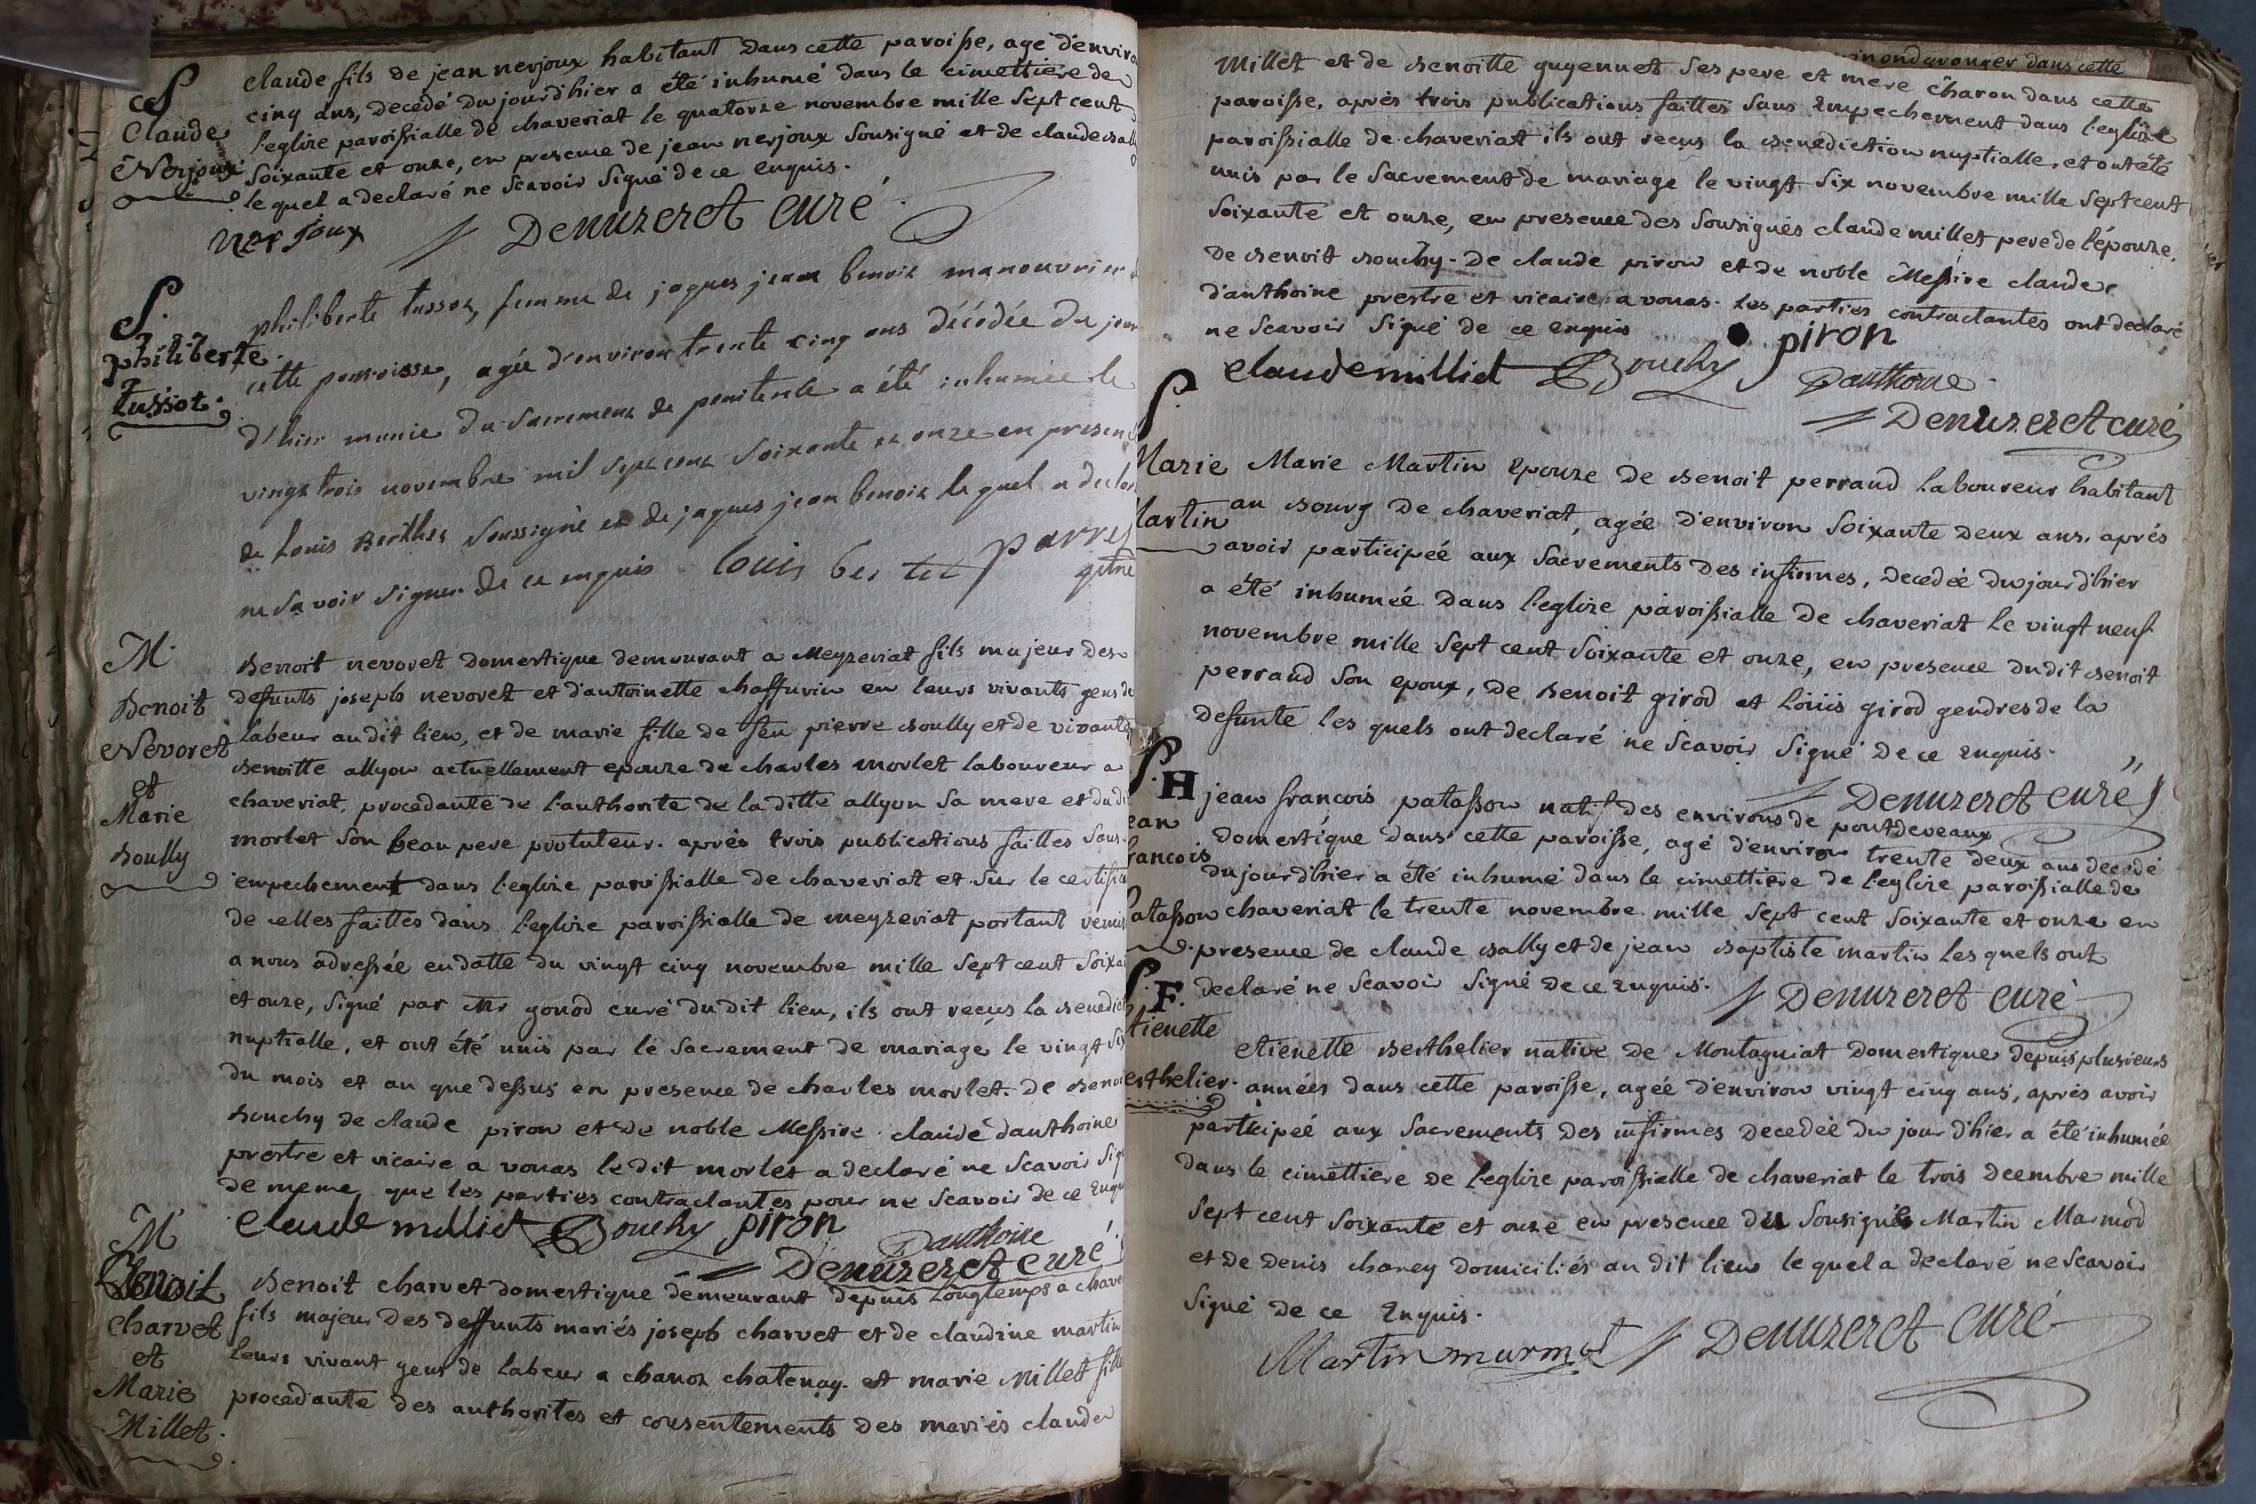 S
Claude
Nerjoux
claude fils de jean nerjoux habitant dans cette paroisse, agé d'environ
cinq ans, decedé du jour d'hier a été inhumé dans le cimettiere de
l'eglize paroissialle de chaveriat le quatorze novembre mille sept cent
soixante et onze, en presence de jean nerjoux sousigné et de claude bally
le quel a declaré ne scavoir signé de ce enquis.
Nerjoux Denuzeret curé
S.
philiberte
tussot.
philiberte tussot, femme de jaques jean benoit manouvrier
cette parroisse, agée d'environ trente cinq ans décédée du jour
d'hier munie du sacrement de penitence a été inhumée le
vingt trois novembre mil sept cent soixante et onze en presence
de louis Berthet soussigné et de jaques jean benoit le quel a declaré
ne savoir signer de ce enquis louis ber tet parres
M.
Benoit
Nevoret
et
Marie
boully
Benoit nevoret domestique demeurant a Meyzeriat fils majeur des
defunts joseph nevoret et d'antoinette chaffurin en leurs vivants gens de
labeur au dit lieu, et de marie fille de feu pierre boully et de vivante
benoitte allyon actuellement epouze de charles morlet laboureur a
chaveriat, procedante de l'authorite de la ditte allyon sa mere et du dit
morlet son beau pere protuteur. après trois publications faittes sans
empechement dans l'eglize paroissialle de chaveriat et sur le certificat
de celles faittes dans l'eglize paroissialle de meyzeriat portant remise
a nous adressée en datte du vingt cinq novembre mille sept cent soixante
et onze, signé par Mr gonod curé du dit lieu, ils ont recus la benediction
nuptialle, et ont été unis par le sacrement de mariage le vingt six
du mois et an que dessus en presence de charles morlet. de benoit
bouchy de claude piron et de noble Messire claude d'anthoine
prestre et vicaire a vonas le dit morlet a declaré ne scavoir signé
de meme que les parties contractantes pour ne scavoir de ce enquis
claude milliet Bouchy piron Danthoine
Denuzeret curé
M
Benoit
charvet
et
Marie
Millet.
Benoit charvet domestique demeurant depuis longtemps a chaveriat
fils majeur des deffunts mariés joseph charvet et de claudine martin
leurs vivant gens de labeur a chanoz chatenay. et marie Millet fille
procedante des authorites et consentements des mariés claude
Millet et de benoitte guyennet ses pere et mere charon dans cette
paroisse, après trois publications faittes sans empechement dans l'eglize
paroissialle de chaveriat ils ont recus la benediction nuptialle, et ont été
unis par le sacrement de mariage le vingt six novembre mille sept cent
soixante et onze, en presence des sousignés claude millet pere de l'épouze,
de benoit bouchy. de claude piron et de noble Messire claude
d'anthoine prestre et vicaire a vonas. les parties contractantes ont declaré
ne scavoir signé de ce enquis
claude milliet Bouchy piron
Danthoine
Denuzeret curé
S.
Marie
Martin
Marie Martin epouze de benoit perraud laboureur habitant
au bourg de chaveriat, agée d'environ soixante deux ans, après
avoir participeé aux sacrements des infirmes, decedée du jour d'hier
a été inhumeé dans l'eglize paroissialle de chaveriat le vingt neuf
novembre mille sept cent soixante et onze, en presence du dit benoit
perraud son epoux, de benoit girod et loüis girod gendres de la
defunte les quels ont declaré ne scavoir signé de ce enquis.
Denuzeret curé
S. H
jean
francois
patasson
jean francois patasson natif des environs de pontdeveaux
domestique dans cette paroisse, agé d'environ trente deux ans decedé
du jour d'hier a été inhumé dans le cimettiere de l'eglize paroissialle de
chaveriat le trente novembre mille sept cent soixante et onze en
presence de claude bally et de jean baptiste martin les quels ont
declaré ne scavoir signé de ce enquis.
Denuzeret curé
S. F.
Etienette
berthelier.
etienette berthelier native de Montagniat domestique depuis plusieurs
années dans cette paroisse, agée d'environ vingt cinq ans, après avoir
participeé aux sacrements des infirmes decedeé du jour d'hier a été inhumée
dans le cimettiere de l'eglize paroissialle de chaveriat le trois decembre mille
sept cent soixante et onze en presence du sousigné Martin Marmod
et de denis charey domiciliés au dit lieu le quel a declaré ne scavoir
signé de ce enquis.
Martin murmot Denuzeret curé